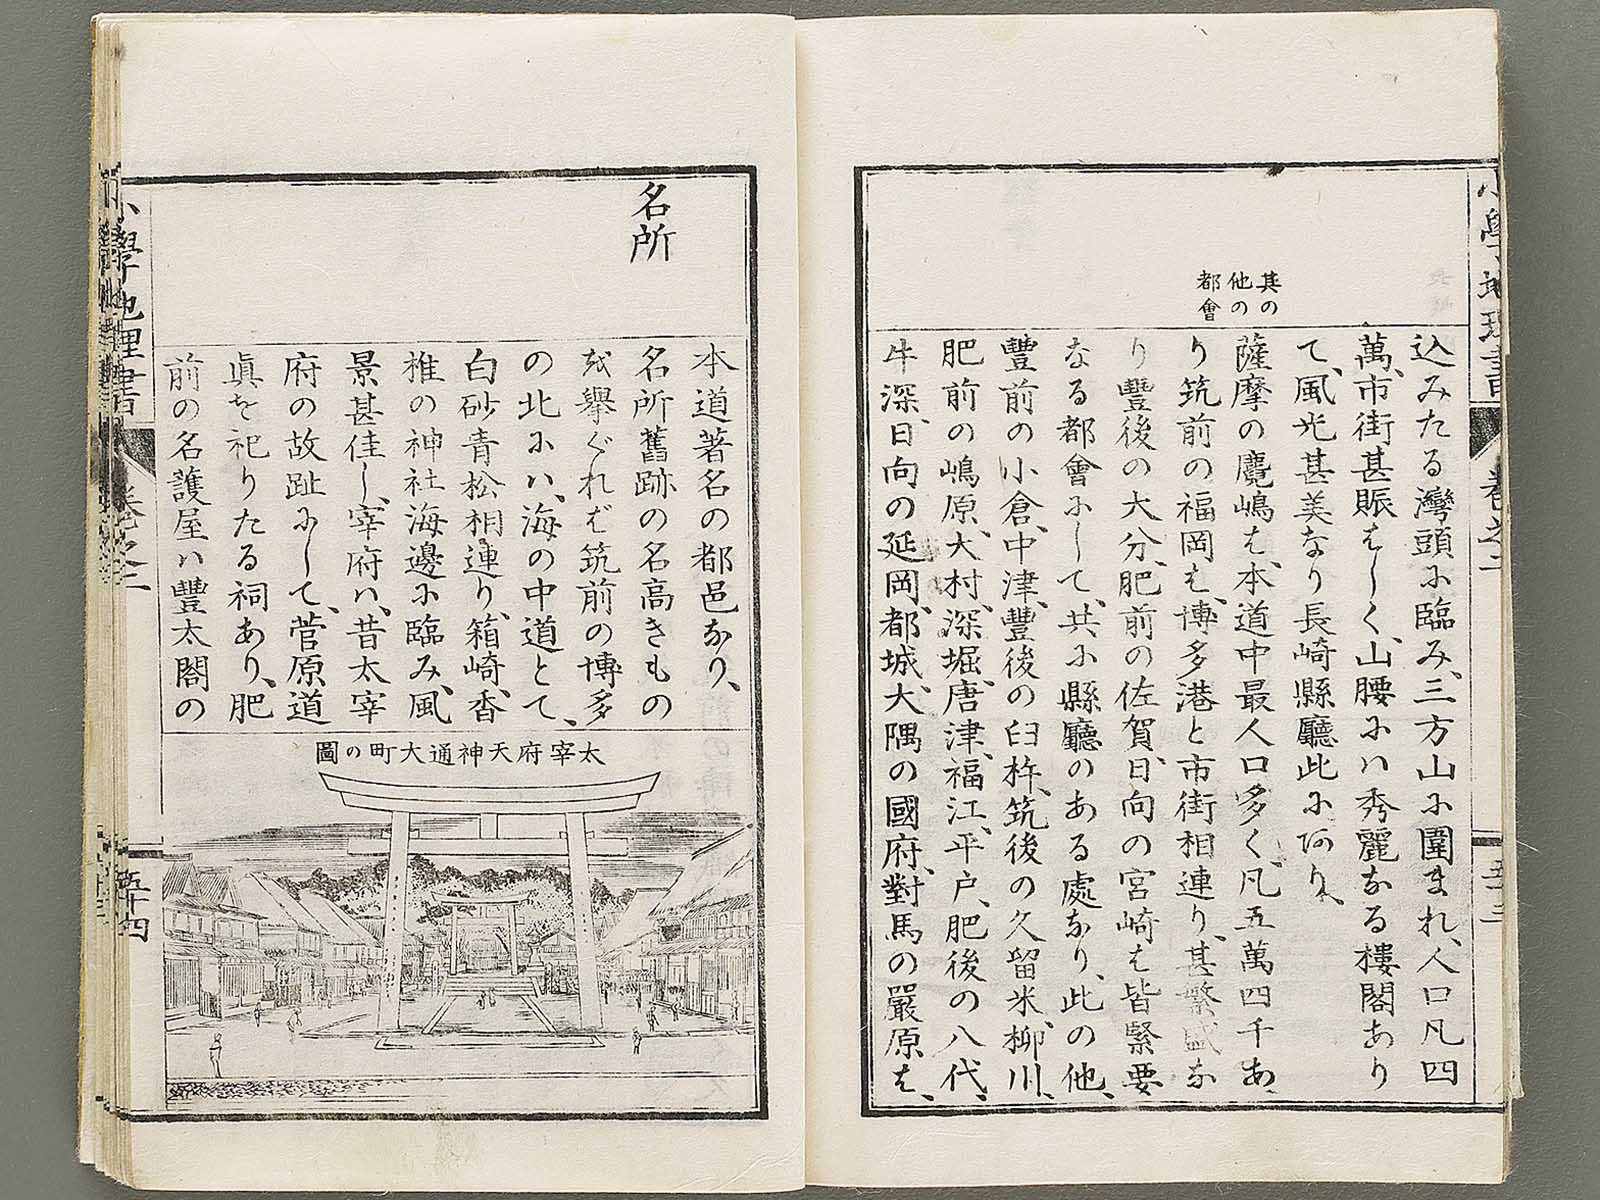 其の
他の
都會
込みたる灣頭に臨み、三方山に圍まれ、人口凡四
萬、市街甚賑はしく、山腰には秀麗なる樓閣あり
て、風光甚美なり長崎縣廳此にあり、
薩摩の麑嶋は、本道中最人口多く、凡五萬四千あ
り筑前の福岡は、博多港と市街相連り、甚繁盛な
り豐後の大分、肥前の佐賀、日向の宮崎は皆緊要
なる都會にして、共に縣廳のある處なり、此の他、
豐前の小倉、中津、豐後の臼杵、筑後の久留米、柳川、
肥前の嶋原、大村、深堀、唐津、福江、平戸、肥後の八代、
牛深、日向の延岡、都城、大隅の國府、對馬の嚴原は、
名所
本道著名の都邑なり、
名所舊跡の名高きもの
を擧ぐれば筑前の博多
の北には、海の中道とて、
白砂青松相連り、箱崎、香
椎の神社海邊に臨み、風
景甚佳し、宰府は、昔太宰
府の故趾にして、菅原道
眞を祀りたる祠あり、肥
前の名護屋は豐太閤の
太宰府天神通大町の圖
小學地理書
卷之二
五十四